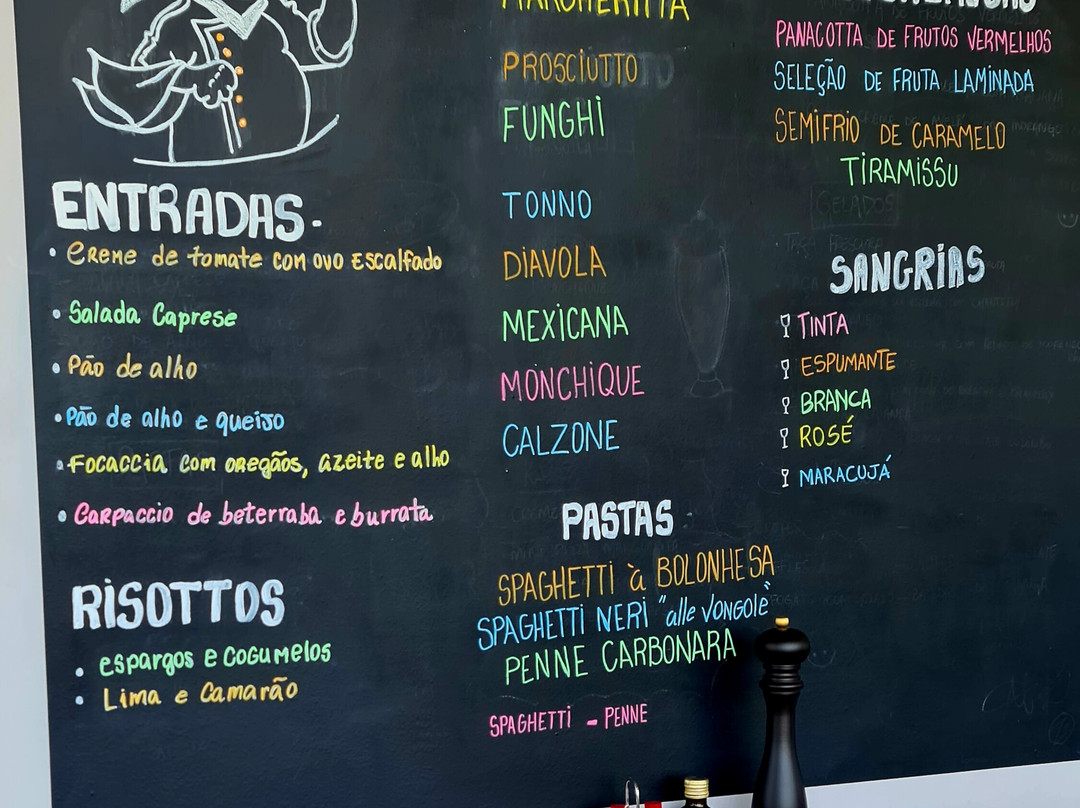 ENTRADAS.
• Creme de tomate con ovo Escalfado
• Salada Caprese
• Pão de alho
• Pão de alho e queijo
• Focaccia com oregãos, azeite e alho
• Carpaccio de beterraba e burrata
RISOTTOS
• espargos e cogumelos
• Lima e Camarão
MARGHERITTA
PROSCIUTTO
FUNGHI
TONNO
DIAVOLA
MEXICANA
MONCHIQUE
CALZONE
PASTAS
SPAGHETTI à BOLONHESA
SPAGHETTI NERI "alle VONGOLE"
PENNE CARBONARA
SPAGHETTI - PENNE
PANACOTTA DE FRUTOS VERMELHOS
SELEÇÃO DE FRUTA LAMINADA
SEMIFRIO DE CARAMELO
TIRAMISSU
GELADOS
SANGRIAS
TINTA
ESPUMANTE
BRANCA
ROSÉ
MARACUJÁ